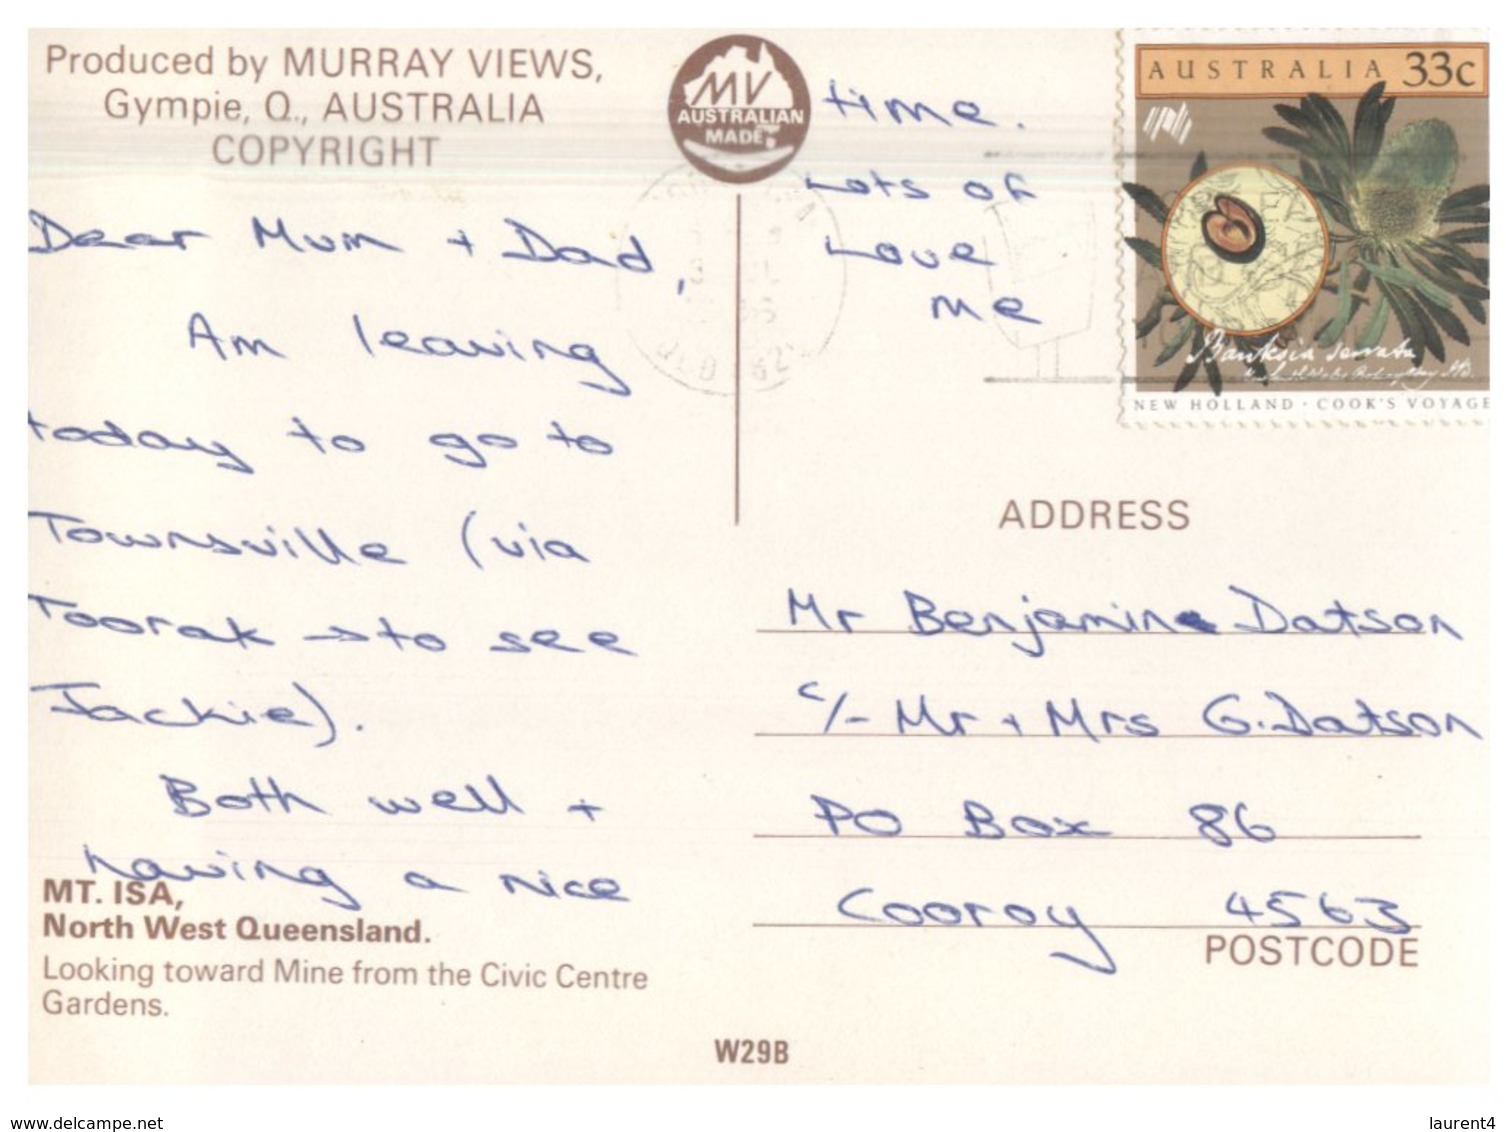 Produced by MURRAY VIEWS,
Gympie, Q., AUSTRALIA
COPYRIGHT
MV
AUSTRALIAN
MADE
AUSTRALIA 33c
Banksia serrata
NEW HOLLAND · COOK'S VOYAGE
Dear Mum + Dad,
Am leaving
today to go to
Townsville (via
Toorak → to see
Jackie).
Both well +
having a nice
time.
Lots of
Love
me
ADDRESS
Mr Benjamin Datson
c/- Mr + Mrs G. Datson
PO Box 86
Cooroy 4563
POSTCODE
MT. ISA,
North West Queensland.
Looking toward Mine from the Civic Centre
Gardens.
W29B
www.delcampe.net
laurent4